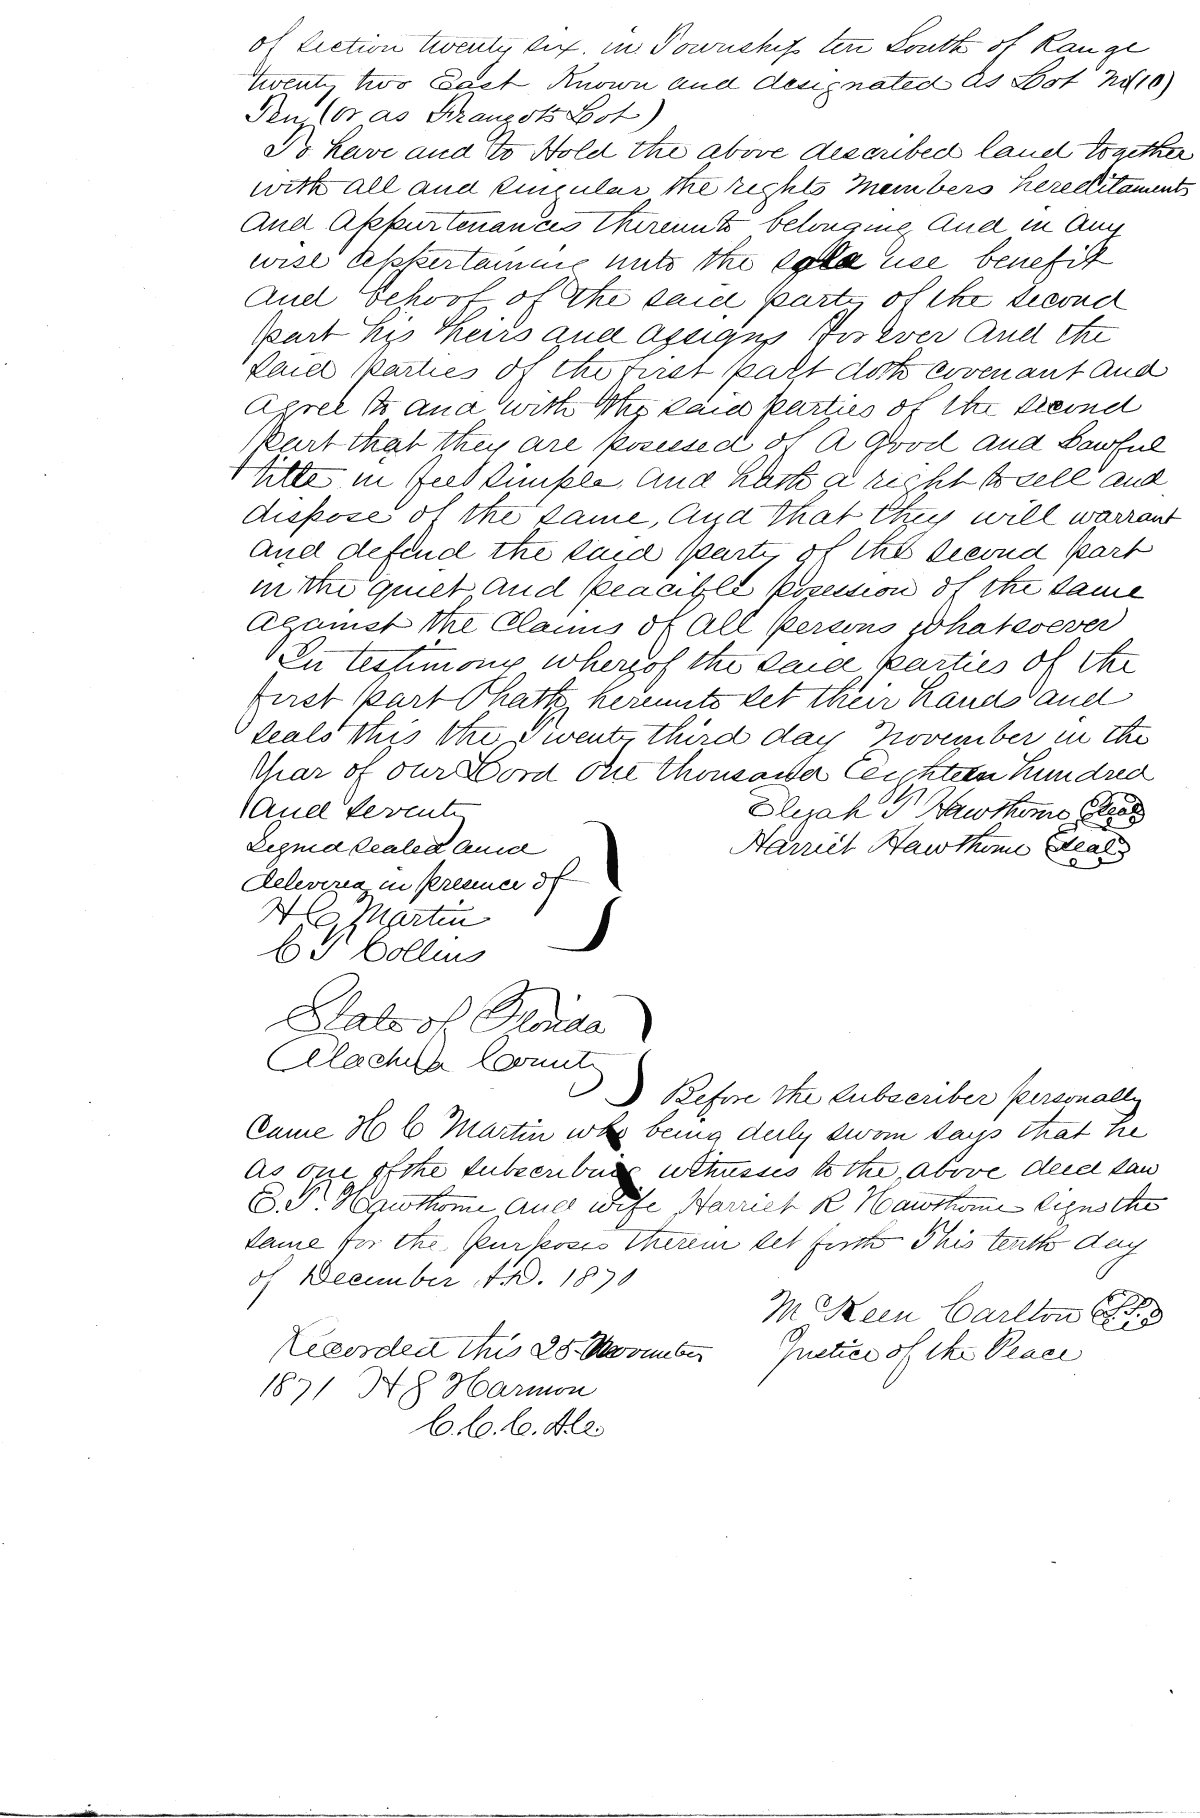 of section twenty six. in Township ten South of Range
twenty two East Known and designated as Lot No (10)
Ten (or as Lot)
To have and to Hold the above described land together
with all and singular the rights members hereditaments
and appurtenances thereunto belonging and in any
wise appertaining unto the sole use benefit
and behoof of the said party of the second
part his heirs and assigns forever And the
said parties of the first part doth covenant and
agree to and with the said parties of the second
part that they are posessed of a good and Lawful
title in fee simple and hath a right to sell and
dispose of the same, and that they will warrant
and defend the said party of the second part
in the quiet and peacible posession of the same
against the claims of all persons whatsoever
In testimony whereof the said parties of the
first part hath hereunto set their hands and
seals this the Twenty third day November in the
Year of our Lord one thousand Eighteen hundred
and seventy Elijah T Hawthorne Seal
Signed sealed and Harriet Hawthorne Seal
delivered in presence of
H C Martin
C T Collins
State of Florida
Alachua County
Before the subscriber personally
came H C Martin who being duly sworn says that he
as one of the subscribing witnesses to the above deed saw
E. T. Hawthorne and wife Harriet R Hawthorne signs the
same for the purposes therein set forth This tenth day
of December A.D. 1870
McKeen Carlton
Recorded this 25 November Justice of the Peace
1871 H S Harmon
C.C.C. A.C.